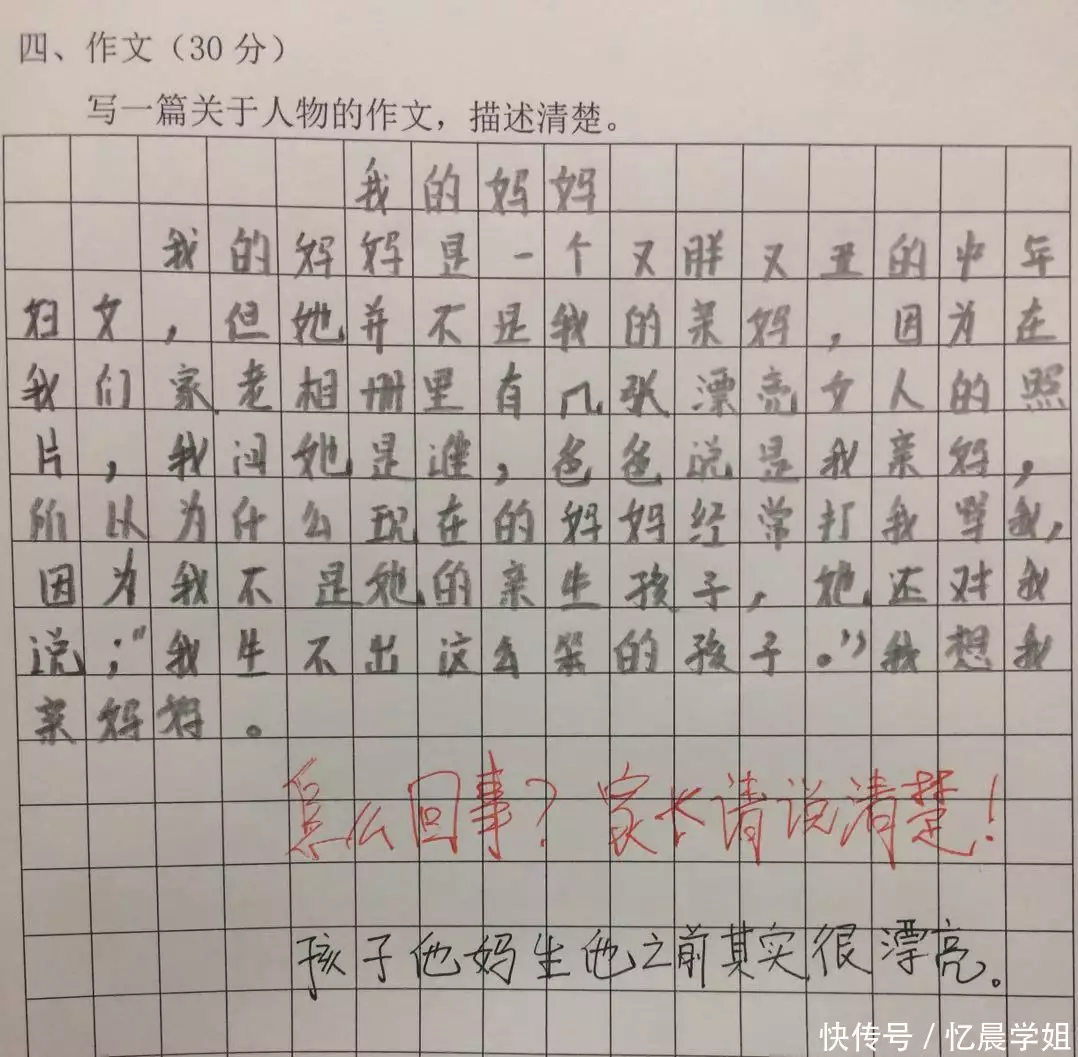 四、作文（30 分）
写一篇关于人物的作文，描述清楚。
我的妈妈
我的妈妈是一个又胖又丑的中年
妇女，但她并不是我的亲妈，因为在
我们家老相册里有几张漂亮女人的照
片，我问她是谁，爸爸说是我亲妈，
所以为什么现在的妈妈经常打我骂我，
因为我不是她的亲生孩子，她还对我
说；“我生不出这么笨的孩子。”我想我
亲妈妈。
怎么回事？家长请说清楚！
孩子他妈生他之前其实很漂亮。
快传号 / 忆晨学姐